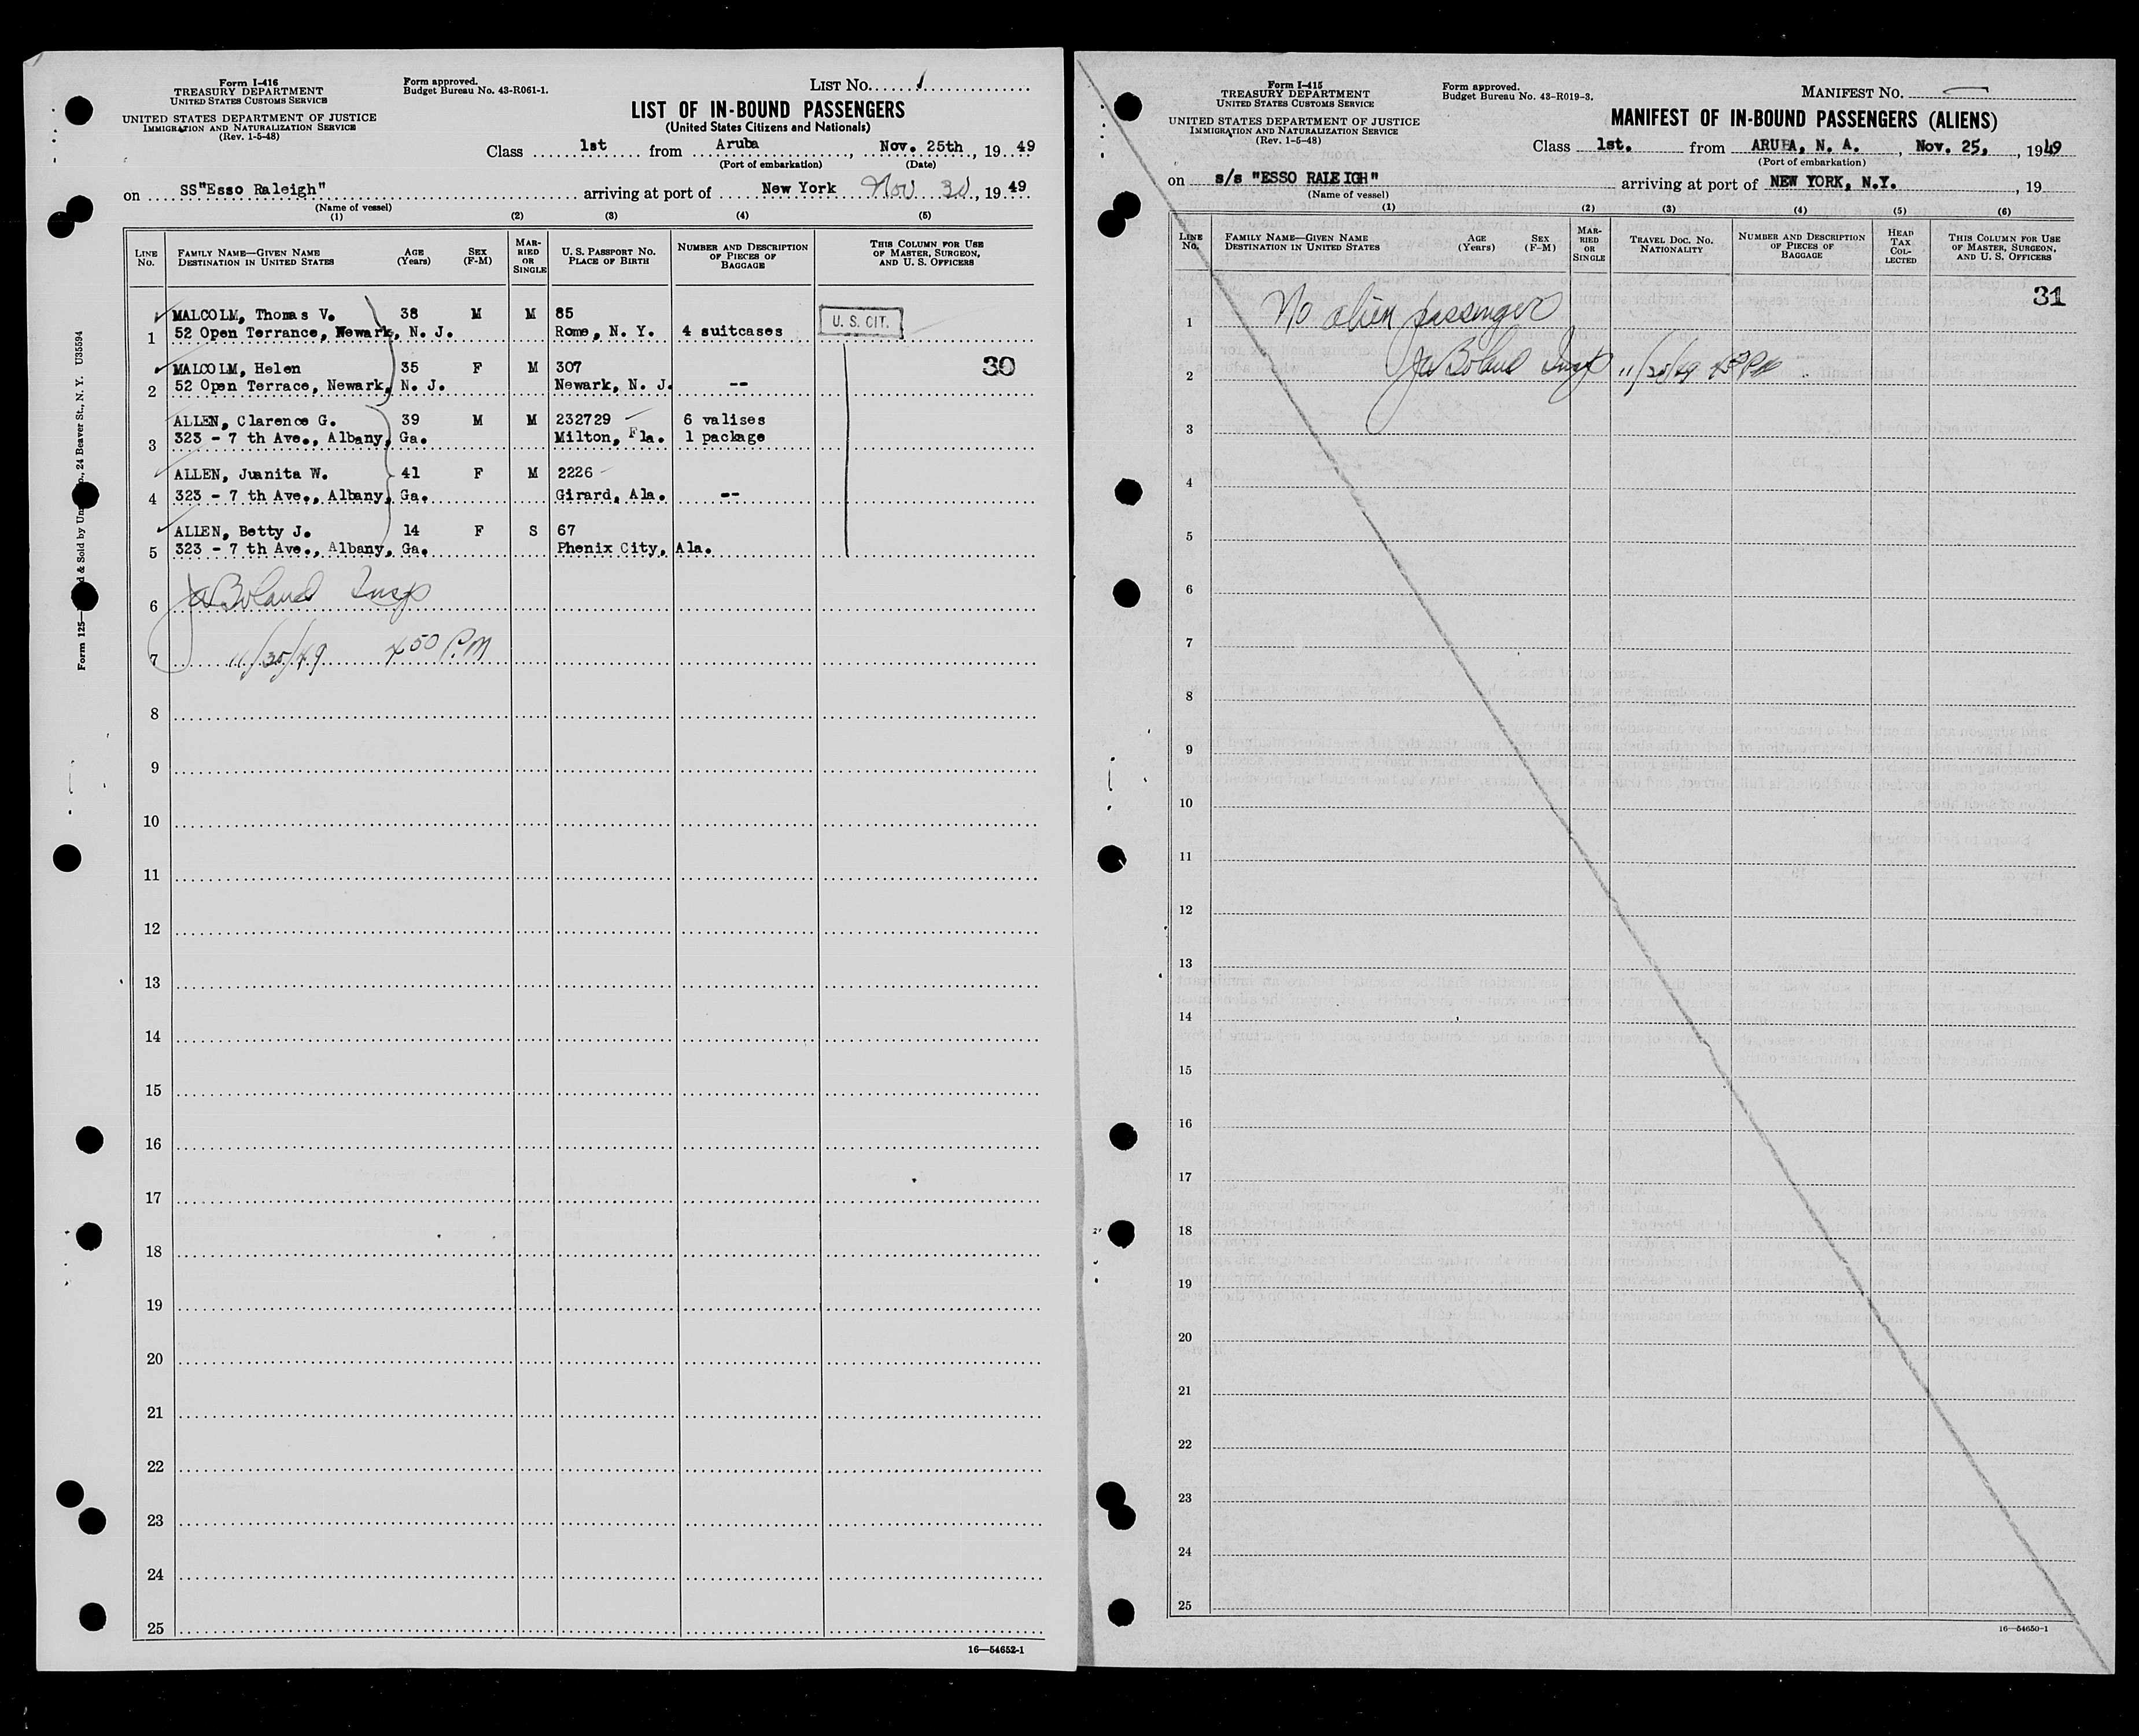 Form I-416
TREASURY DEPARTMENT
UNITED STATES CUSTOMS SERVICE
UNITED STATES DEPARTMENT OF JUSTICE
IMMIGRATION AND NATURALIZATION SERVICE
(Rev. 1-5-48)
Form approved.
Budget Bureau No. 43-R061-1.
LIST No. 1
LIST OF IN-BOUND PASSENGERS
(United States Citizens and Nationals)
Class 1st from Aruba, Nov. 25th, 1949
(Port of embarkation) (Date)
on SS"Esso Raleigh" arriving at port of New York Nov 30, 1949
(Name of vessel)
(1) (2) (3) (4) (5)
LINE No. FAMILY NAME—GIVEN NAME DESTINATION IN UNITED STATES AGE (Years) SEX (F-M) MARRIED OR SINGLE U. S. PASSPORT No. PLACE OF BIRTH NUMBER AND DESCRIPTION OF PIECES OF BAGGAGE THIS COLUMN FOR USE OF MASTER, SURGEON, AND U. S. OFFICERS
MALCOLM, Thomas V. 38 M M 85 U. S. CIT.
1 52 Open Terrance, Newark, N. J. Rome, N. Y. 4 suitcases
30
MALCOLM, Helen 35 F M 307
2 52 Open Terrace, Newark, N. J. Newark, N. J. --
ALLEN, Clarence G. 39 M M 232729 6 valises
3 323 - 7 th Ave., Albany, Ga. Milton, Fla. 1 package
ALLEN, Juanita W. 41 F M 2226
4 323 - 7 th Ave., Albany, Ga. Girard, Ala. --
ALLEN, Betty J. 14 F S 67
5 323 - 7 th Ave., Albany, Ga. Phenix City, Ala.
6 JaBoland Insp
7 11/30/49 450 P.M
8
9
10
11
12
13
14
15
16
17
18
19
20
21
22
23
24
25
16—54652-1
Form 125— & Sold by 24 Beaver St., N. Y. U35594
Form I-415
TREASURY DEPARTMENT
UNITED STATES CUSTOMS SERVICE
UNITED STATES DEPARTMENT OF JUSTICE
IMMIGRATION AND NATURALIZATION SERVICE
(Rev. 1-5-48)
Form approved.
Budget Bureau No. 43-R019-3.
MANIFEST No.
MANIFEST OF IN-BOUND PASSENGERS (ALIENS)
Class 1st. from ARUBA, N. A., Nov. 25, 1949
(Port of embarkation)
on s/s "ESSO RALEIGH" arriving at port of NEW YORK, N.Y., 19
(Name of vessel)
(1) (2) (3) (4) (5) (6)
LINE No. FAMILY NAME—GIVEN NAME DESTINATION IN UNITED STATES AGE (Years) SEX (F-M) MARRIED OR SINGLE TRAVEL DOC. No. NATIONALITY NUMBER AND DESCRIPTION OF PIECES OF BAGGAGE HEAD TAX COLLECTED THIS COLUMN FOR USE OF MASTER, SURGEON, AND U. S. OFFICERS
31
1 No alien passenger
2 JaBoland Insp 11/30/49
3
4
5
6
7
8
9
10
11
12
13
14
15
16
17
18
19
20
21
22
23
24
25
16—54650-1